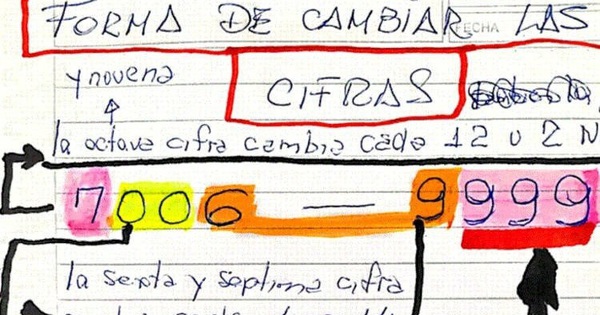 FORMA DE CAMBIAR LAS
FECHA
y novena
CIFRAS
la octava cifra cambia cada 12 u 2 N
7006 — 9999
la sexta y septima cifra